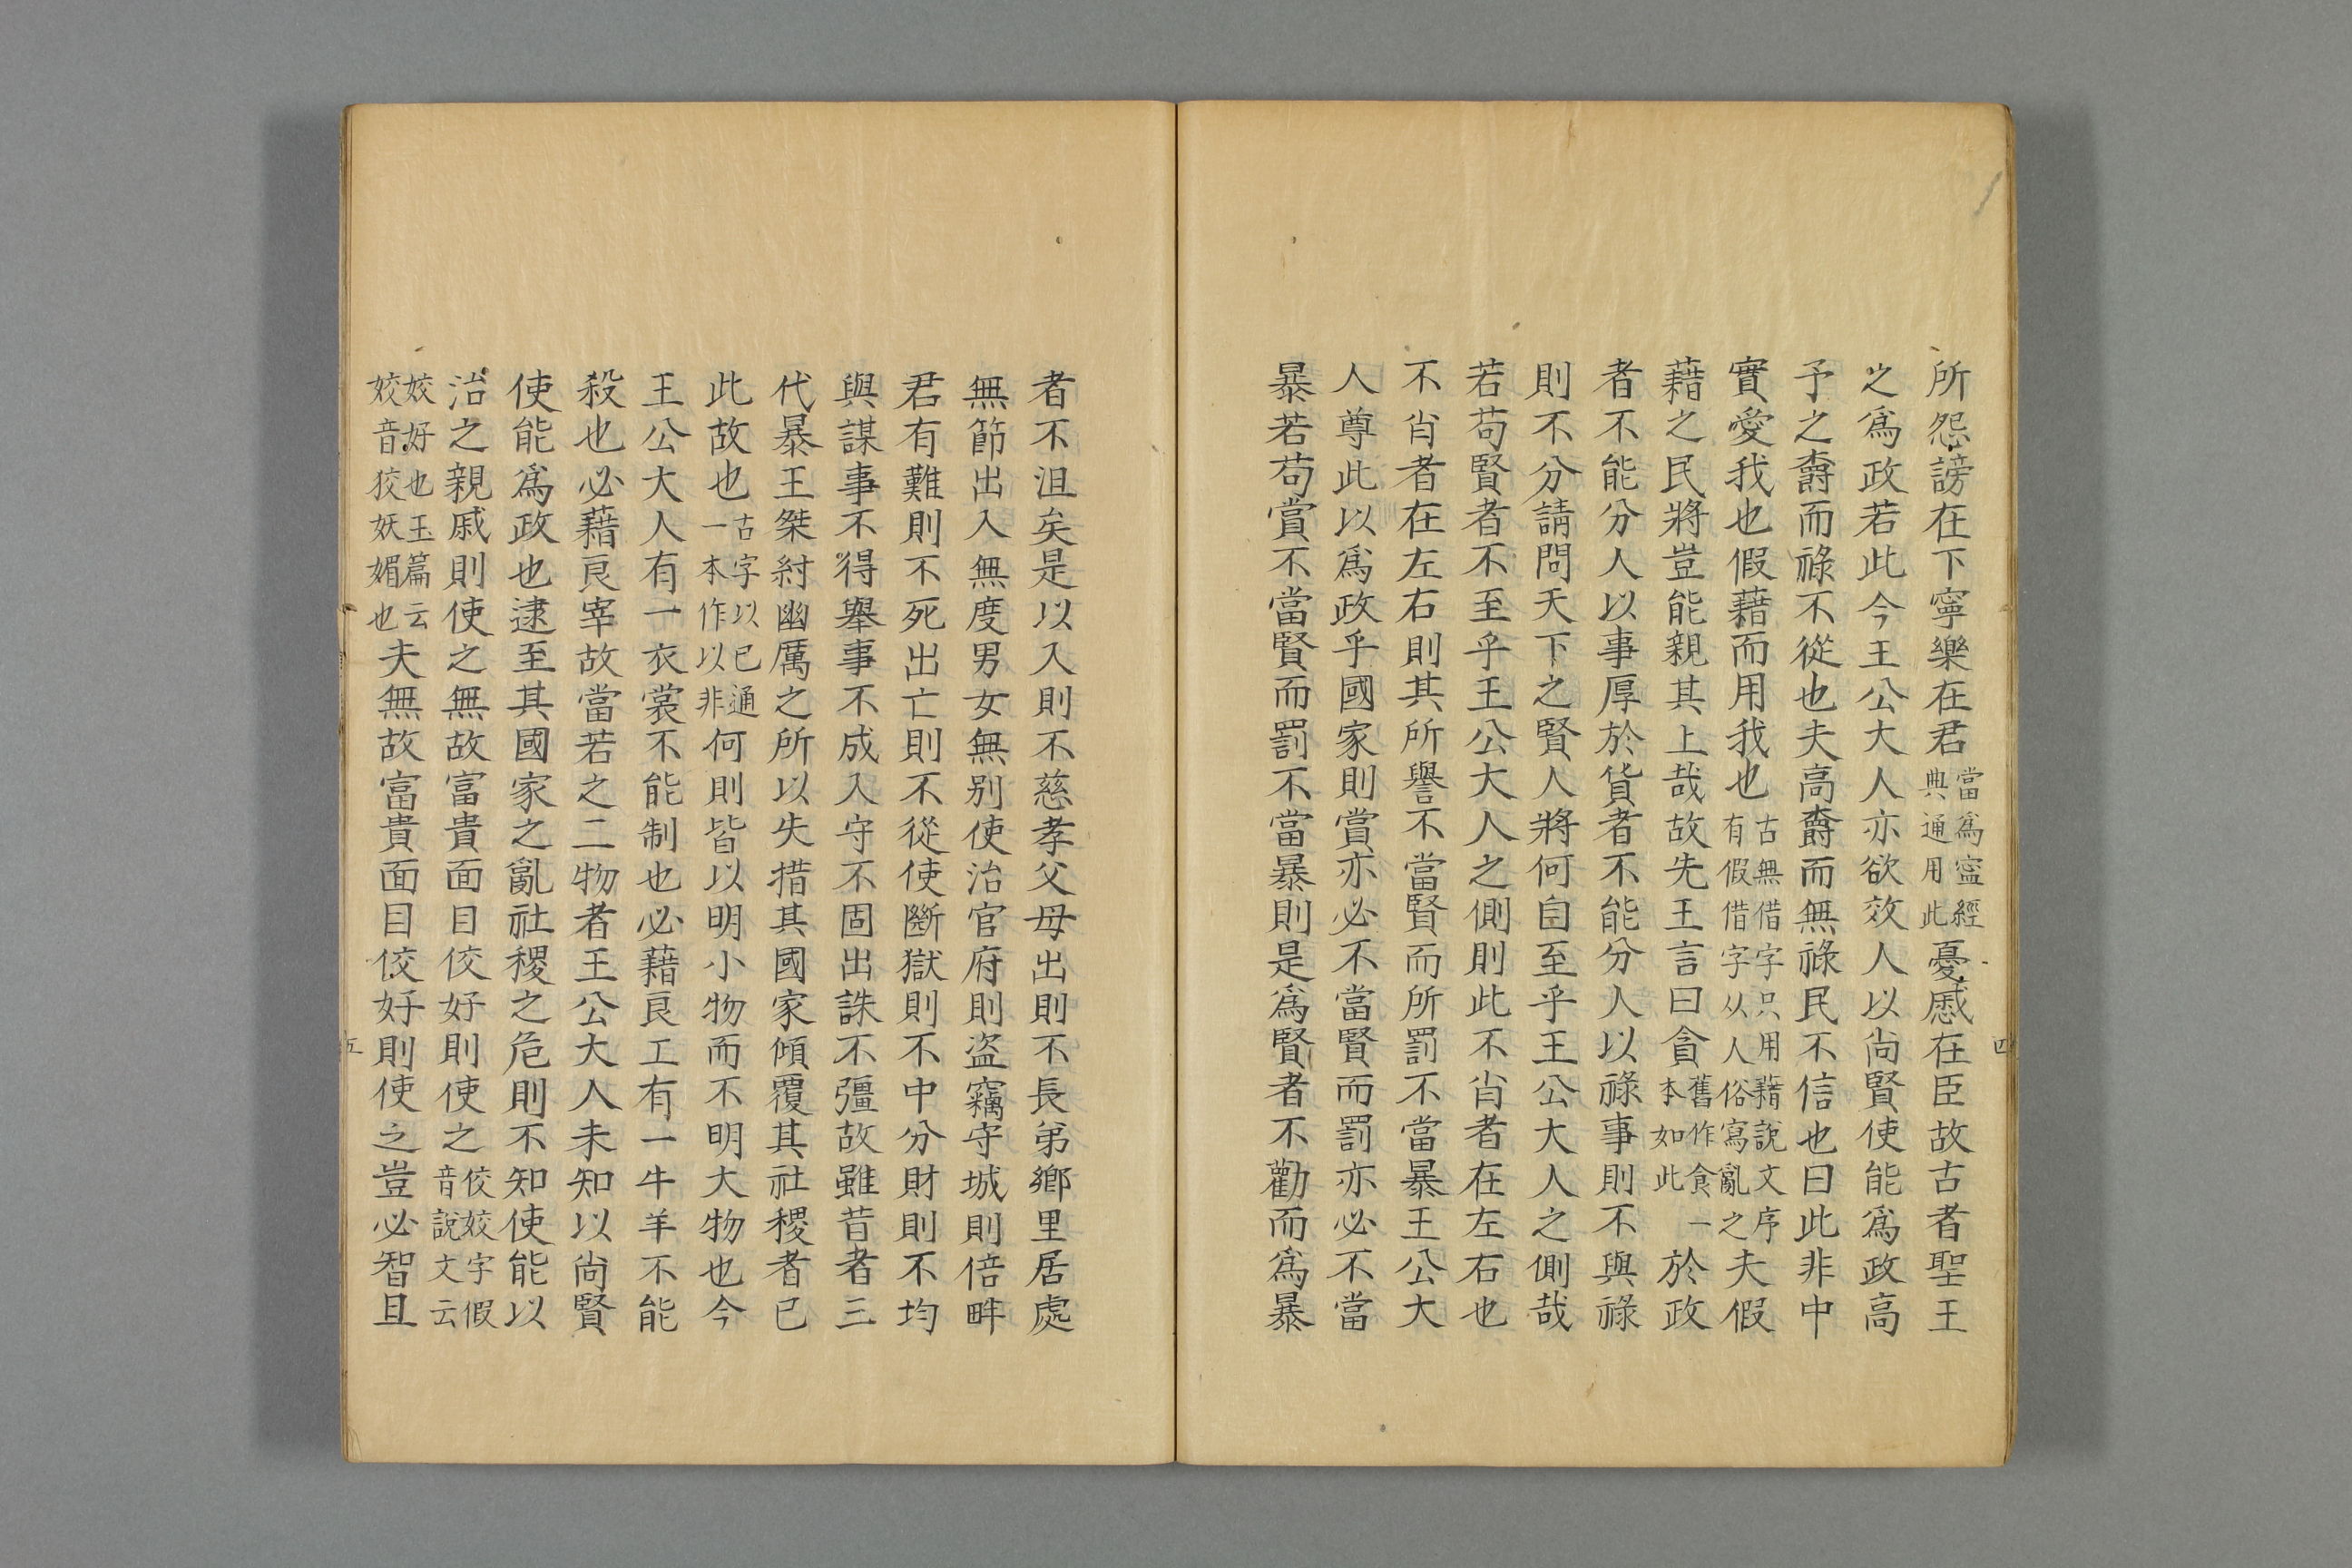 所怨謗在下寧樂在君當爲寍經典通用此憂慼在臣故古者聖王
之爲政若此今王公大人亦欲效人以尚賢使能爲政高
予之爵而祿不從也夫高爵而無祿民不信也曰此非中
實愛我也假藉而用我也古無借字只用藉說文序有假借字从人俗寫亂之夫假
藉之民將豈能親其上哉故先王言曰貪舊作食一本如此於政
者不能分人以事厚於貨者不能分人以祿事則不與祿
則不分請問天下之賢人將何自至乎王公大人之側哉
若苟賢者不至乎王公大人之側則此不肖者在左右也
不肖者在左右則其所譽不當賢而所罰不當暴王公大
人尊此以爲政乎國家則賞亦必不當賢而罰亦必不當
暴若苟賞不當賢而罰不當暴則是爲賢者不勸而爲暴
四
者不沮矣是以入則不慈孝父母出則不長弟鄉里居處
無節出入無度男女無别使治官府則盜竊守城則倍畔
君有難則不死出亡則不從使斷獄則不中分財則不均
與謀事不得舉事不成入守不固出誅不彊故雖昔者三
代暴王桀紂幽厲之所以失措其國家傾覆其社稷者已
此故也古字以已通一本作以非何則皆以明小物而不明大物也今
王公大人有一衣裳不能制也必藉良工有一牛羊不能
殺也必藉良宰故當若之二物者王公大人未知以尚賢
使能爲政也逮至其國家之亂社稷之危則不知使能以
治之親戚則使之無故富貴面目佼好則使之佼姣字假音說文云
姣好也玉篇云姣音狡妖媚也夫無故富貴面目佼好則使之豈必智且
五